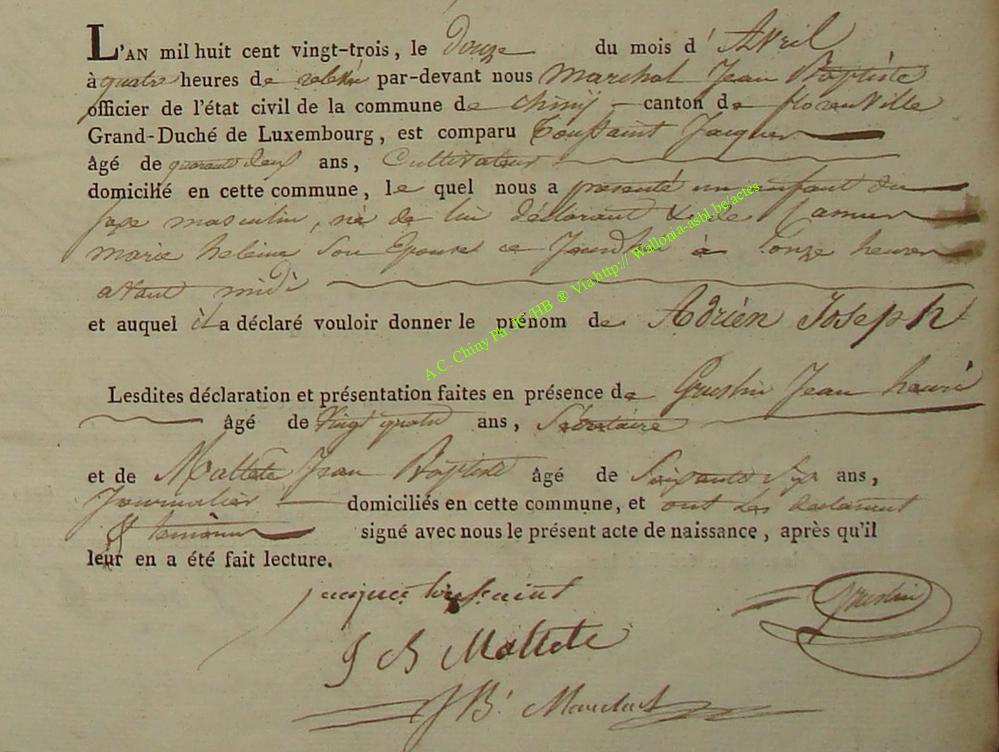 L'AN mil huit cent vingt-trois, le douze du mois d'Avril
à quatre heures de relevée par-devant nous Marchal Jean Baptiste
officier de l'état civil de la commune de chiny canton de florenville
Grand-Duché de Luxembourg, est comparu Toussaint Jacques
âgé de quarante deux ans, Cultivateur
domicilié en cette commune, le quel nous a présenté un enfant du
sexe masculin, né de lui déclarant & de Camus
marie helene son Epouse ce Jourdhui à onze heures
avant midi
et auquel il a déclaré vouloir donner le prénom de Adrién Joseph
Lesdites déclaration et présentation faites en présence de Guestin Jean henri
âgé de vingt quatre ans, Sécretaire
et de Mattete Jean Baptiste âgé de Soixante Six ans,
Journalier domiciliés en cette commune, et ont les declarant
& temoins signé avec nous le présent acte de naissance, après qu'il
leur en a été fait lecture.
jacque tousaint
Guestin
J B Mattete
J Bt Marchal
A.C. Chiny Ph. JC/HB ® Via http://Wallonia-asbl.be/actes